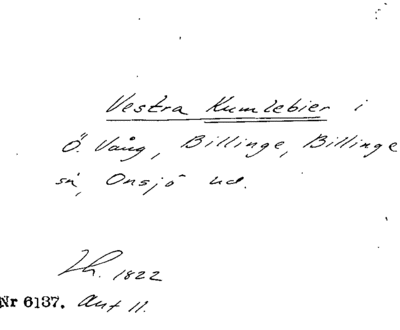 Vestra Kumlebier i
Ö. Vång, Billinge, Billinge
sn, Onsjö hd.
Lh. 1822
Nr 6137. Akt 11.